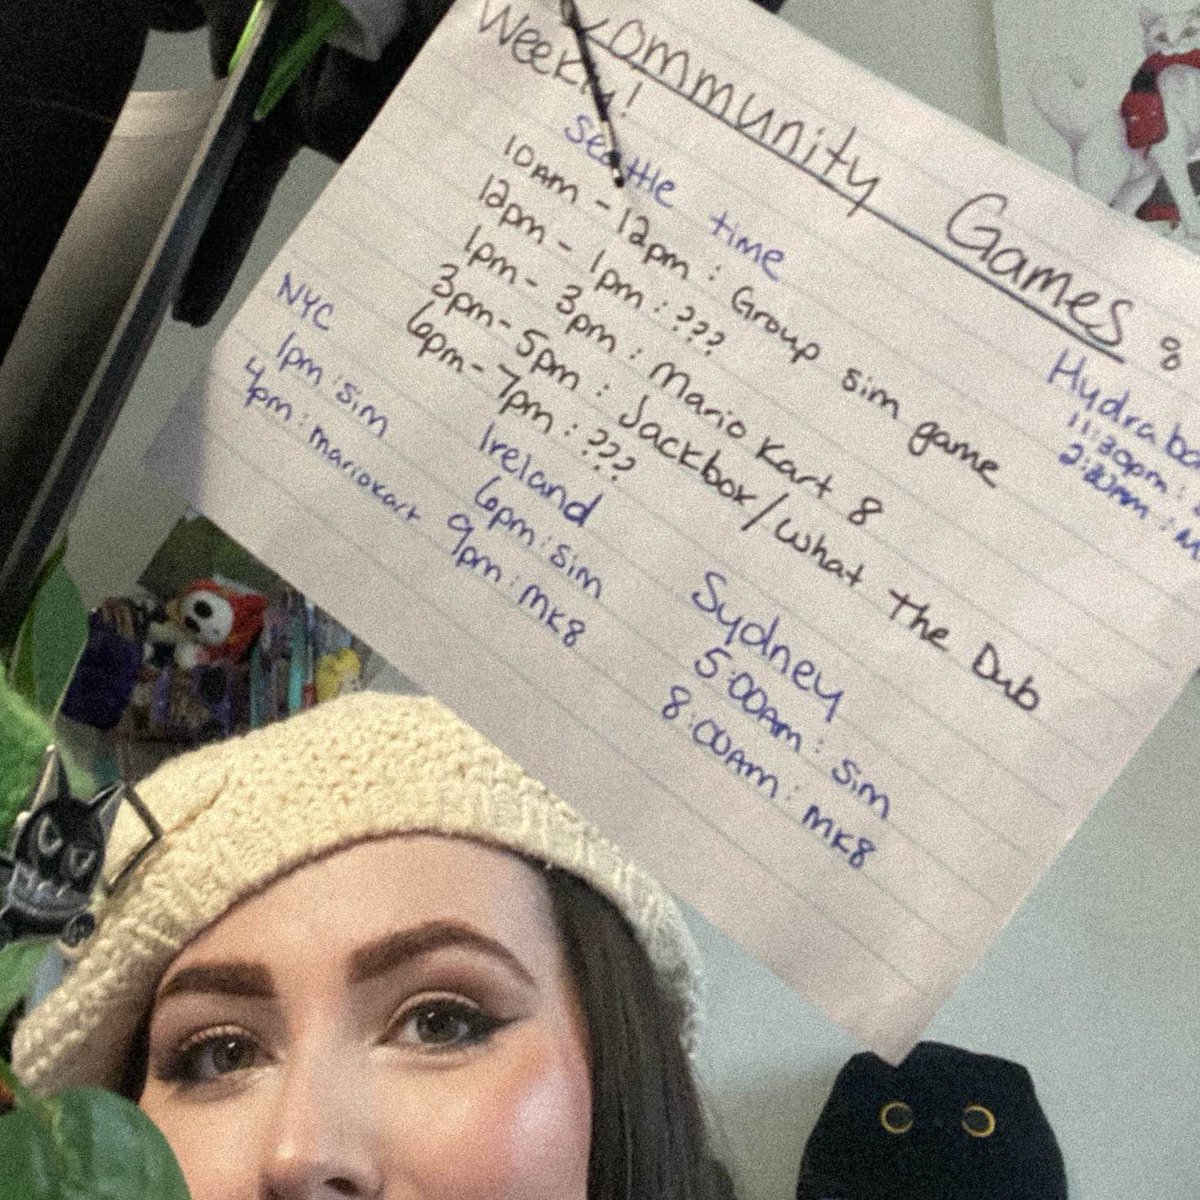 Community Games :
Weekly!
Seattle time
10AM - 12pm : Group sim game
12pm - 1pm : ???
1pm - 3pm : Mario Kart 8
3pm - 5pm : Jackbox/What The Dub
6pm - 7pm : ???
NYC
1pm : sim
4pm : mariokart
Ireland
6pm : sim
9pm : MK8
Sydney
5:00AM : sim
8:00AM : MK8
11:30pm :